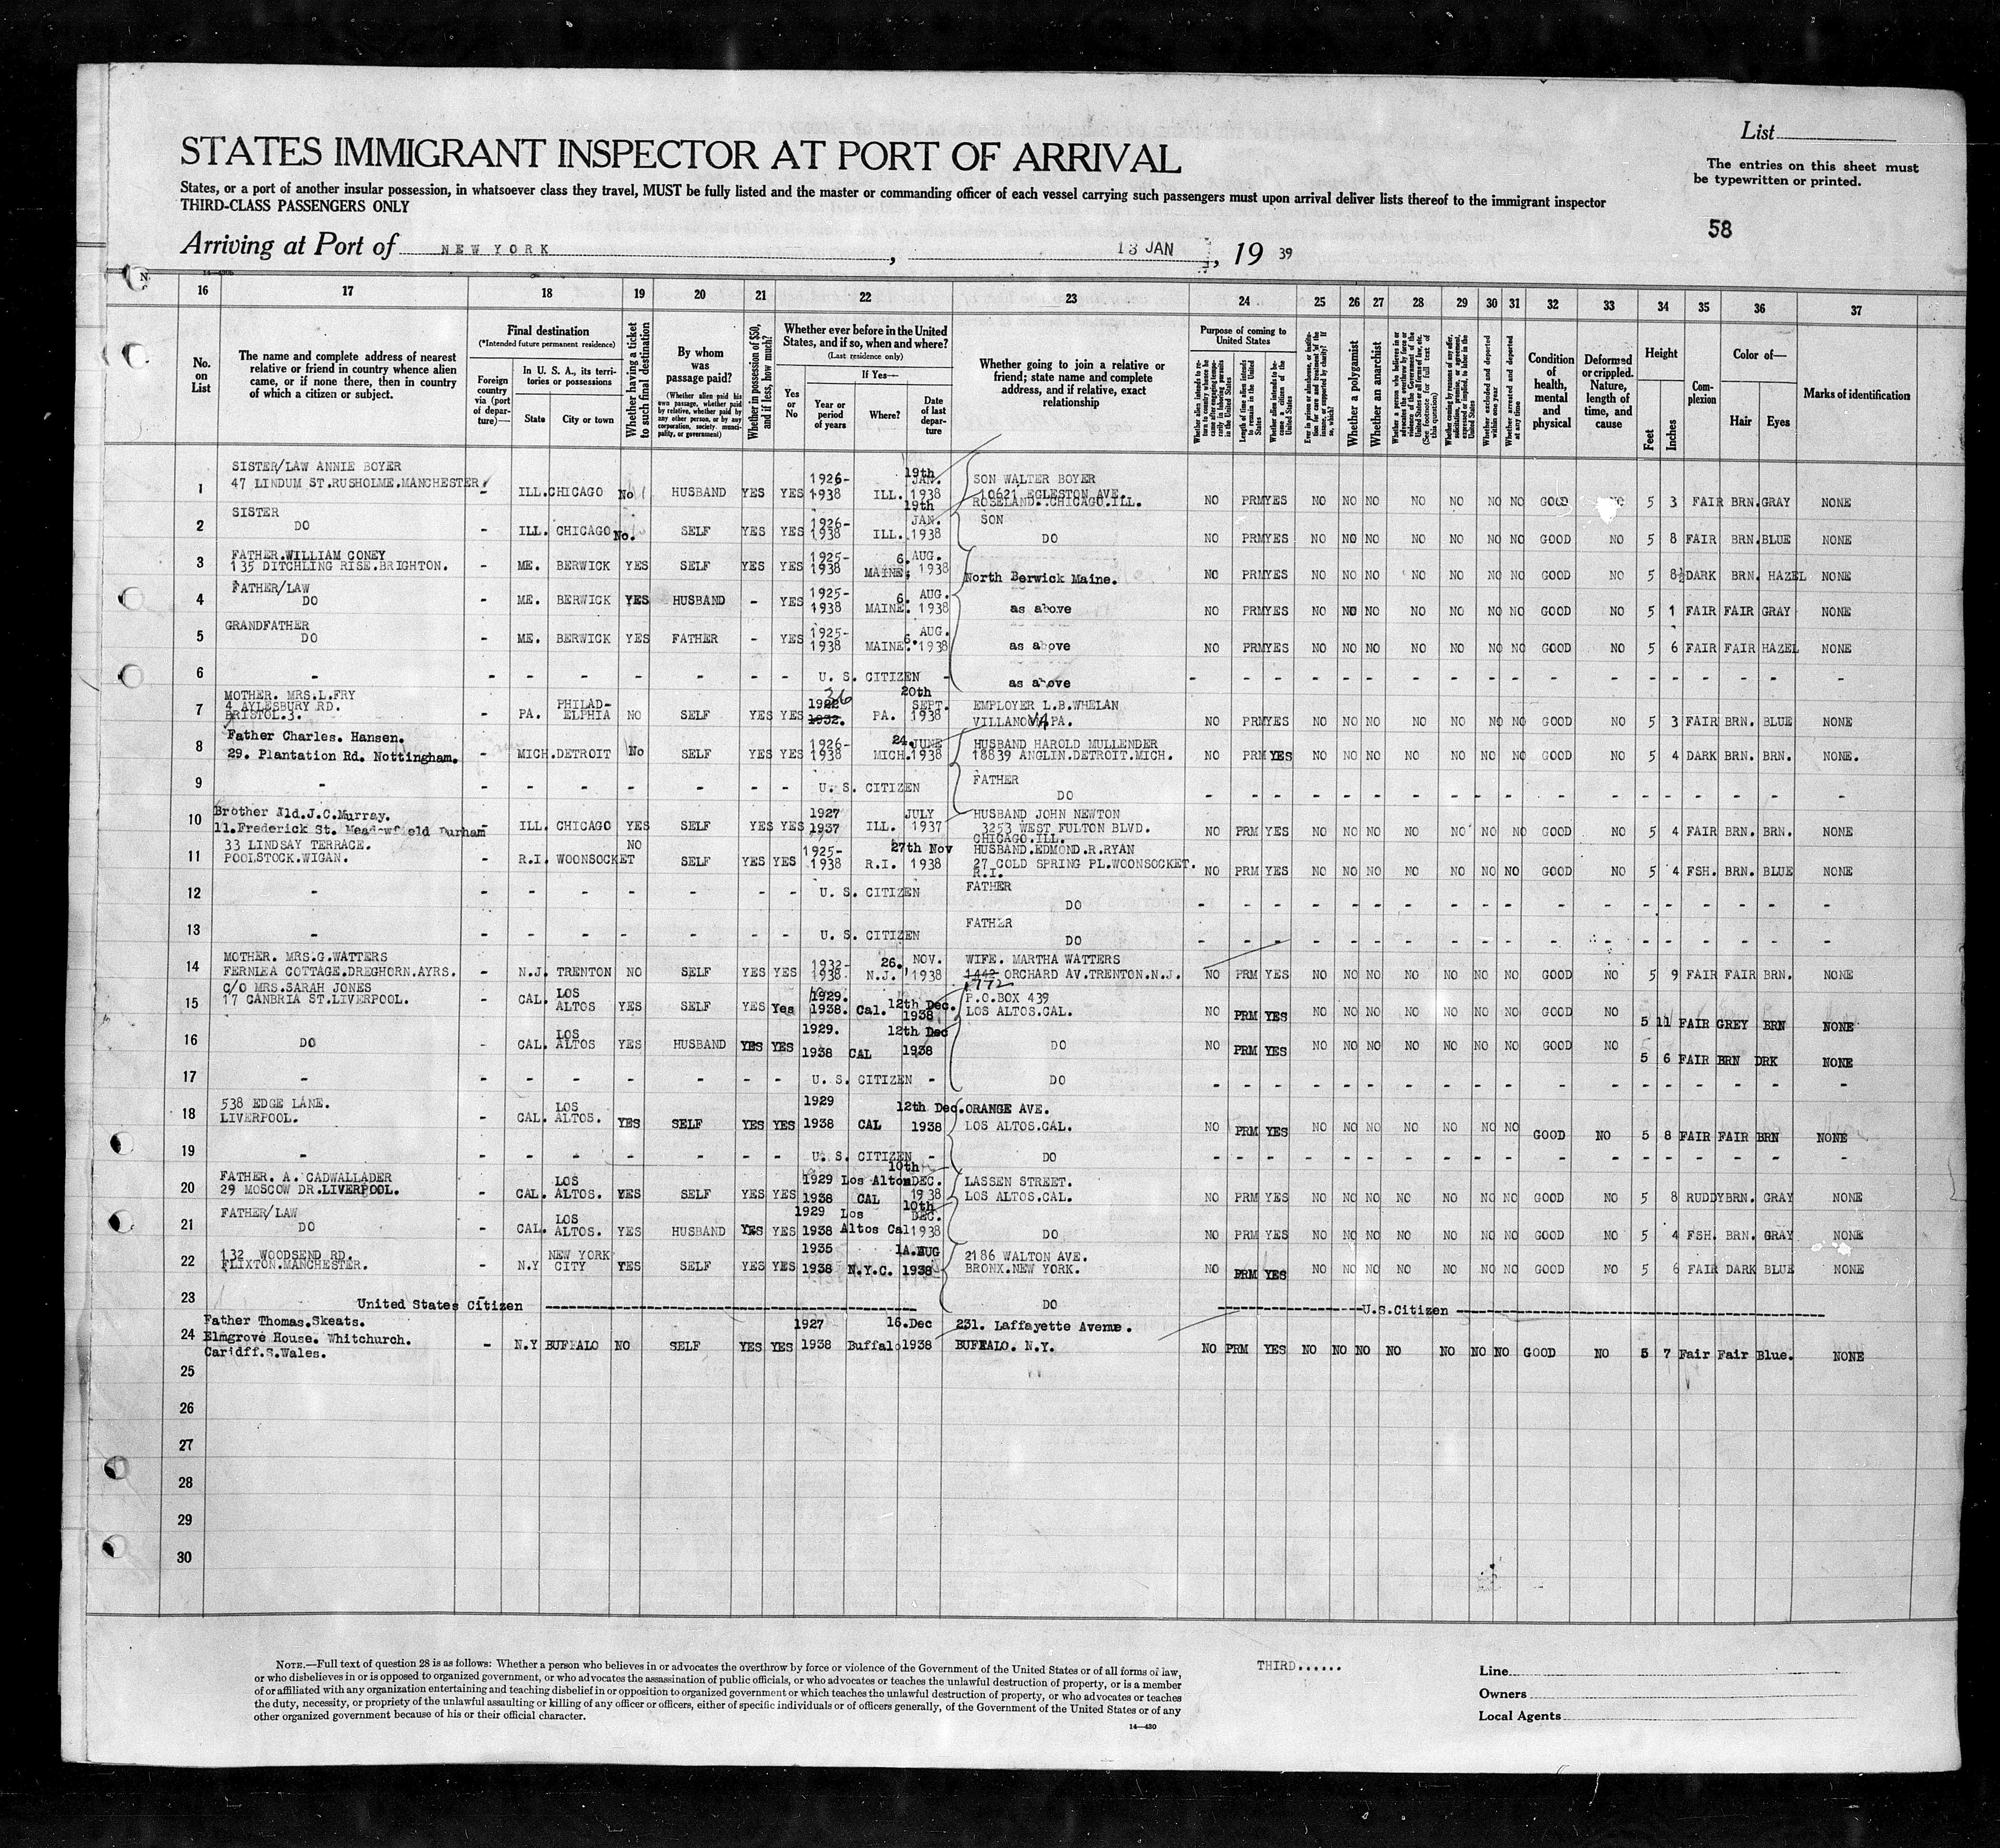 List
STATES IMMIGRANT INSPECTOR AT PORT OF ARRIVAL
The entries on this sheet must
be typewritten or printed.
States, or a port of another insular possession, in whatsoever class they travel, MUST be fully listed and the master or commanding officer of each vessel carrying such passengers must upon arrival deliver lists thereof to the immigrant inspector
THIRD-CLASS PASSENGERS ONLY
58
Arriving at Port of NEW YORK, 13 JAN, 19 39
16 17 18 19 20 21 22 23 24 25 26 27 28 29 30 31 32 33 34 35 36 37
No. on List
The name and complete address of nearest relative or friend in country whence alien came, or if none there, then in country of which a citizen or subject.
Final destination
(*Intended future permanent residence)
Foreign country via (port of departure)—
In U. S. A., its territories or possessions
State City or town
Whether having a ticket to such final destination
By whom was passage paid?
(Whether alien paid his own passage, whether paid by relative, whether paid by any other person, or by any corporation, society, municipality, or government)
Whether in possession of $50, and if less, how much?
Whether ever before in the United States, and if so, when and where?
(Last residence only)
Yes or No
If Yes—
Year or period of years Where? Date of last departure
Whether going to join a relative or friend; state name and complete address, and if relative, exact relationship
Purpose of coming to United States
Length of time alien intends to remain in the United States
Whether alien intends to become a citizen of the United States
Whether a polygamist
Whether an anarchist
Whether arrested and deported within one year
Whether arrested and deported at any time
Condition of health, mental and physical
Deformed or crippled. Nature, length of time, and cause
Height
Feet Inches
Complexion
Color of—
Hair Eyes
Marks of identification
1 SISTER/LAW ANNIE BOYER
47 LINDUM ST.RUSHOLME.MANCHESTER. - ILL. CHICAGO No HUSBAND YES YES 1926-1938 ILL. 19th JAN. 1938 SON WALTER BOYER
10621 EGLESTON AVE.
ROSELAND. CHICAGO.ILL. NO PRM YES NO NO NO NO NO NO NO GOOD NO 5 3 FAIR BRN. GRAY NONE
2 SISTER
DO - ILL. CHICAGO No. SELF YES YES 1926-1938 ILL. 19th JAN. 1938 SON
DO NO PRM YES NO NO NO NO NO NO NO GOOD NO 5 8 FAIR BRN. BLUE NONE
3 FATHER.WILLIAM CONEY
135 DITCHLING RISE.BRIGHTON. - ME. BERWICK YES SELF YES YES 1925-1938 MAINE. 6. AUG. 1938 North Berwick Maine. NO PRM YES NO NO NO NO NO NO NO GOOD NO 5 8½ DARK BRN. HAZEL NONE
4 FATHER/LAW
DO - ME. BERWICK YES HUSBAND - YES 1925-1938 MAINE. 6. AUG. 1938 as above NO PRM YES NO NO NO NO NO NO NO GOOD NO 5 1 FAIR FAIR GRAY NONE
5 GRANDFATHER
DO - ME. BERWICK YES FATHER - YES 1925-1938 MAINE. 6. AUG. 1938 as above NO PRM YES NO NO NO NO NO NO NO GOOD NO 5 6 FAIR FAIR HAZEL NONE
6 - - - - - - - - U. S. CITIZEN - as above - - - - - - - - - - - - - - - - - -
7 MOTHER. MRS.L.FRY
4 AYLESBURY RD.
BRISTOL.3. - PA. PHILADELPHIA NO SELF YES YES 1922 36 1932. PA. 20th SEPT. 1938 EMPLOYER L.B.WHELAN
VILLANOVA PA. NO PRM YES NO NO NO NO NO NO NO GOOD NO 5 3 FAIR BRN. BLUE NONE
8 Father Charles. Hansen.
29. Plantation Rd. Nottingham. - MICH. DETROIT No SELF YES YES 1926-1938 MICH. 24. JUNE 1938 HUSBAND HAROLD MULLENDER
18839 ANGLIN.DETROIT.MICH. NO PRM YES NO NO NO NO NO NO NO GOOD NO 5 4 DARK BRN. BRN. NONE.
9 - - - - - - - - U. S. CITIZEN FATHER
DO - - - - - - - - - - - - - - - - - -
10 Brother Ald.J.C.Murray.
11.Frederick St. Meadowfield Durham - ILL. CHICAGO YES SELF YES YES 1927 1937 ILL. JULY 1937 HUSBAND JOHN NEWTON
3253 WEST FULTON BLVD.
CHICAGO.ILL. NO PRM YES NO NO NO NO NO NO NO GOOD NO 5 4 FAIR BRN. BRN. NONE
11 33 LINDSAY TERRACE.
POOLSTOCK.WIGAN. - R.I. WOONSOCKET NO SELF YES YES 1925-1938 R.I. 27th Nov 1938 HUSBAND.EDMOND.R.RYAN
27 COLD SPRING PL.WOONSOCKET.
R.I. NO PRM YES NO NO NO NO NO NO NO GOOD NO 5 4 FSH. BRN. BLUE NONE
12 - - - - - - - - U. S. CITIZEN FATHER
DO - - - - - - - - - - - - - - - - - -
13 - - - - - - - - U. S. CITIZEN FATHER
DO - - - - - - - - - - - - - - - - - -
14 MOTHER. MRS.G.WATTERS
FERNLEA COTTAGE.DREGHORN.AYRS. - N.J. TRENTON NO SELF YES YES 1932-1938. N.J. 26. NOV. 1938 WIFE. MARTHA WATTERS
1442 ORCHARD AV.TRENTON.N.J.
1772 NO PRM YES NO NO NO NO NO NO NO GOOD NO 5 9 FAIR FAIR BRN. NONE
15 C/O MRS.SARAH JONES
17 CANBRIA ST.LIVERPOOL. - CAL. LOS ALTOS YES SELF YES Yes 1929. 1938. Cal. 12th Dec. 1938 P.O.BOX 439
LOS ALTOS.CAL. NO PRM YES NO NO NO NO NO NO NO GOOD NO 5 11 FAIR GREY BRN NONE
16 DO - CAL. LOS ALTOS YES HUSBAND YES YES 1929. 1938 CAL 12th Dec 1938 DO NO PRM YES NO NO NO NO NO NO NO GOOD NO 5 6 FAIR BRN DRK NONE
17 - - - - - - - - U. S. CITIZEN - DO - - - - - - - - - - - - - - - - - -
18 538 EDGE LANE.
LIVERPOOL. - CAL. LOS ALTOS. YES SELF YES YES 1929 1938 CAL 12th Dec. 1938 ORANGE AVE.
LOS ALTOS.CAL. NO PRM YES NO NO NO NO NO NO NO GOOD NO 5 8 FAIR FAIR BRN NONE
19 - - - - - - - - U. S. CITIZEN - DO - - - - - - - - - - - - - - - - - -
20 FATHER. A. CADWALLADER
29 MOSCOW DR.LIVERPOOL. - CAL. LOS ALTOS. YES SELF YES YES 1929 1938 Los Altos CAL 10th DEC. 1938 LASSEN STREET.
LOS ALTOS.CAL. NO PRM YES NO NO NO NO NO NO NO GOOD NO 5 8 RUDDY BRN. GRAY NONE
21 FATHER/LAW
DO - CAL. LOS ALTOS. YES HUSBAND YES YES 1929 1938 Los Altos Cal 10th DEC. 1938 DO NO PRM YES NO NO NO NO NO NO NO GOOD NO 5 4 FSH. BRN. GRAY NONE
22 132 WOODSEND RD.
FLIXTON.MANCHESTER. - N.Y NEW YORK CITY YES SELF YES YES 1935 1938 N.Y.C. AUG 1938 2186 WALTON AVE.
BRONX.NEW YORK. NO PRM YES NO NO NO NO NO NO NO GOOD NO 5 6 FAIR DARK BLUE NONE
23 United States Citizen DO U.S.Citizen
24 Father Thomas.Skeats.
Elmgrove House. Whitchurch.
Caridff.S.Wales. - N.Y BUFFALO NO SELF YES YES 1927 1938 Buffalo 16.Dec 1938 231. Laffayette Avenue.
BUFFALO. N.Y. NO PRM YES NO NO NO NO NO NO NO GOOD NO 5 7 Fair Fair Blue. NONE
25
26
27
28
29
30
NOTE.—Full text of question 28 is as follows: Whether a person who believes in or advocates the overthrow by force or violence of the Government of the United States or of all forms of law,
or who disbelieves in or is opposed to organized government, or who advocates the assassination of public officials, or who advocates or teaches the unlawful destruction of property, or is a member
of or affiliated with any organization entertaining and teaching disbelief in or opposition to organized government or which teaches the unlawful destruction of property, or who advocates or teaches
the duty, necessity, or propriety of the unlawful assaulting or killing of any officer or officers, either of specific individuals or of officers generally, of the Government of the United States or of any
other organized government because of his or their official character.
14—430
THIRD......
Line
Owners
Local Agents